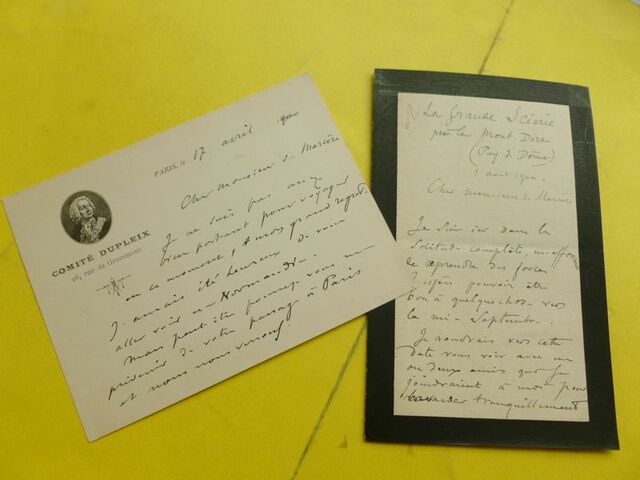 PARIS, le 17 avril 1900
COMITÉ DUPLEIX
26, rue de Grammont
Cher Monsieur de Marcère
Je ne suis pas assez
bien portant pour voyager
en ce moment, à mon grand regret.
J'aurais été heureux de vous
aller voir en Normandie.
Mais peut-être pourrez-vous me
prévenir de votre passage à Paris
et nous nous verrons.
La Grande Scierie
près le Mont Dore
(Puy de Dôme)
1 août 1900.
Cher monsieur de Marcère
Je suis ici dans la
solitude complète, m'efforçant
de reprendre des forces
J'espère pouvoir être
bon à quelque chose vers
la mi-Septembre.
Je voudrais vers cette
date vous voir avec un
ou deux amis que je
joindraient à moi pour
bavarder tranquillement